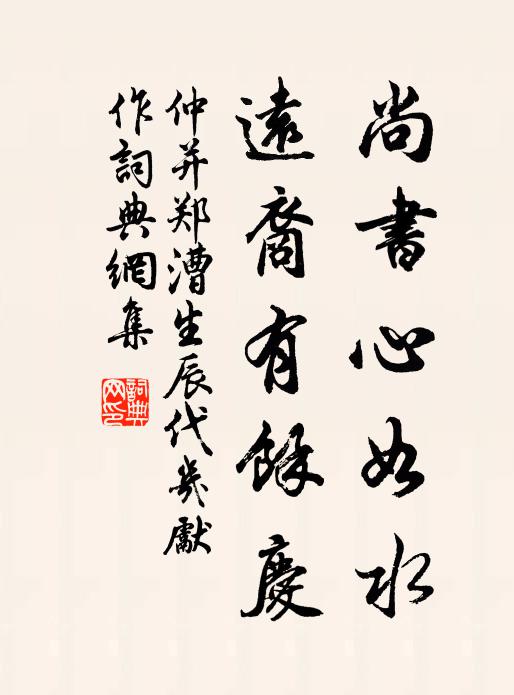 尚書心如水
遠裔有餘慶
仲并郑漕生辰代岁獻
作詞典網集
詞典
网印